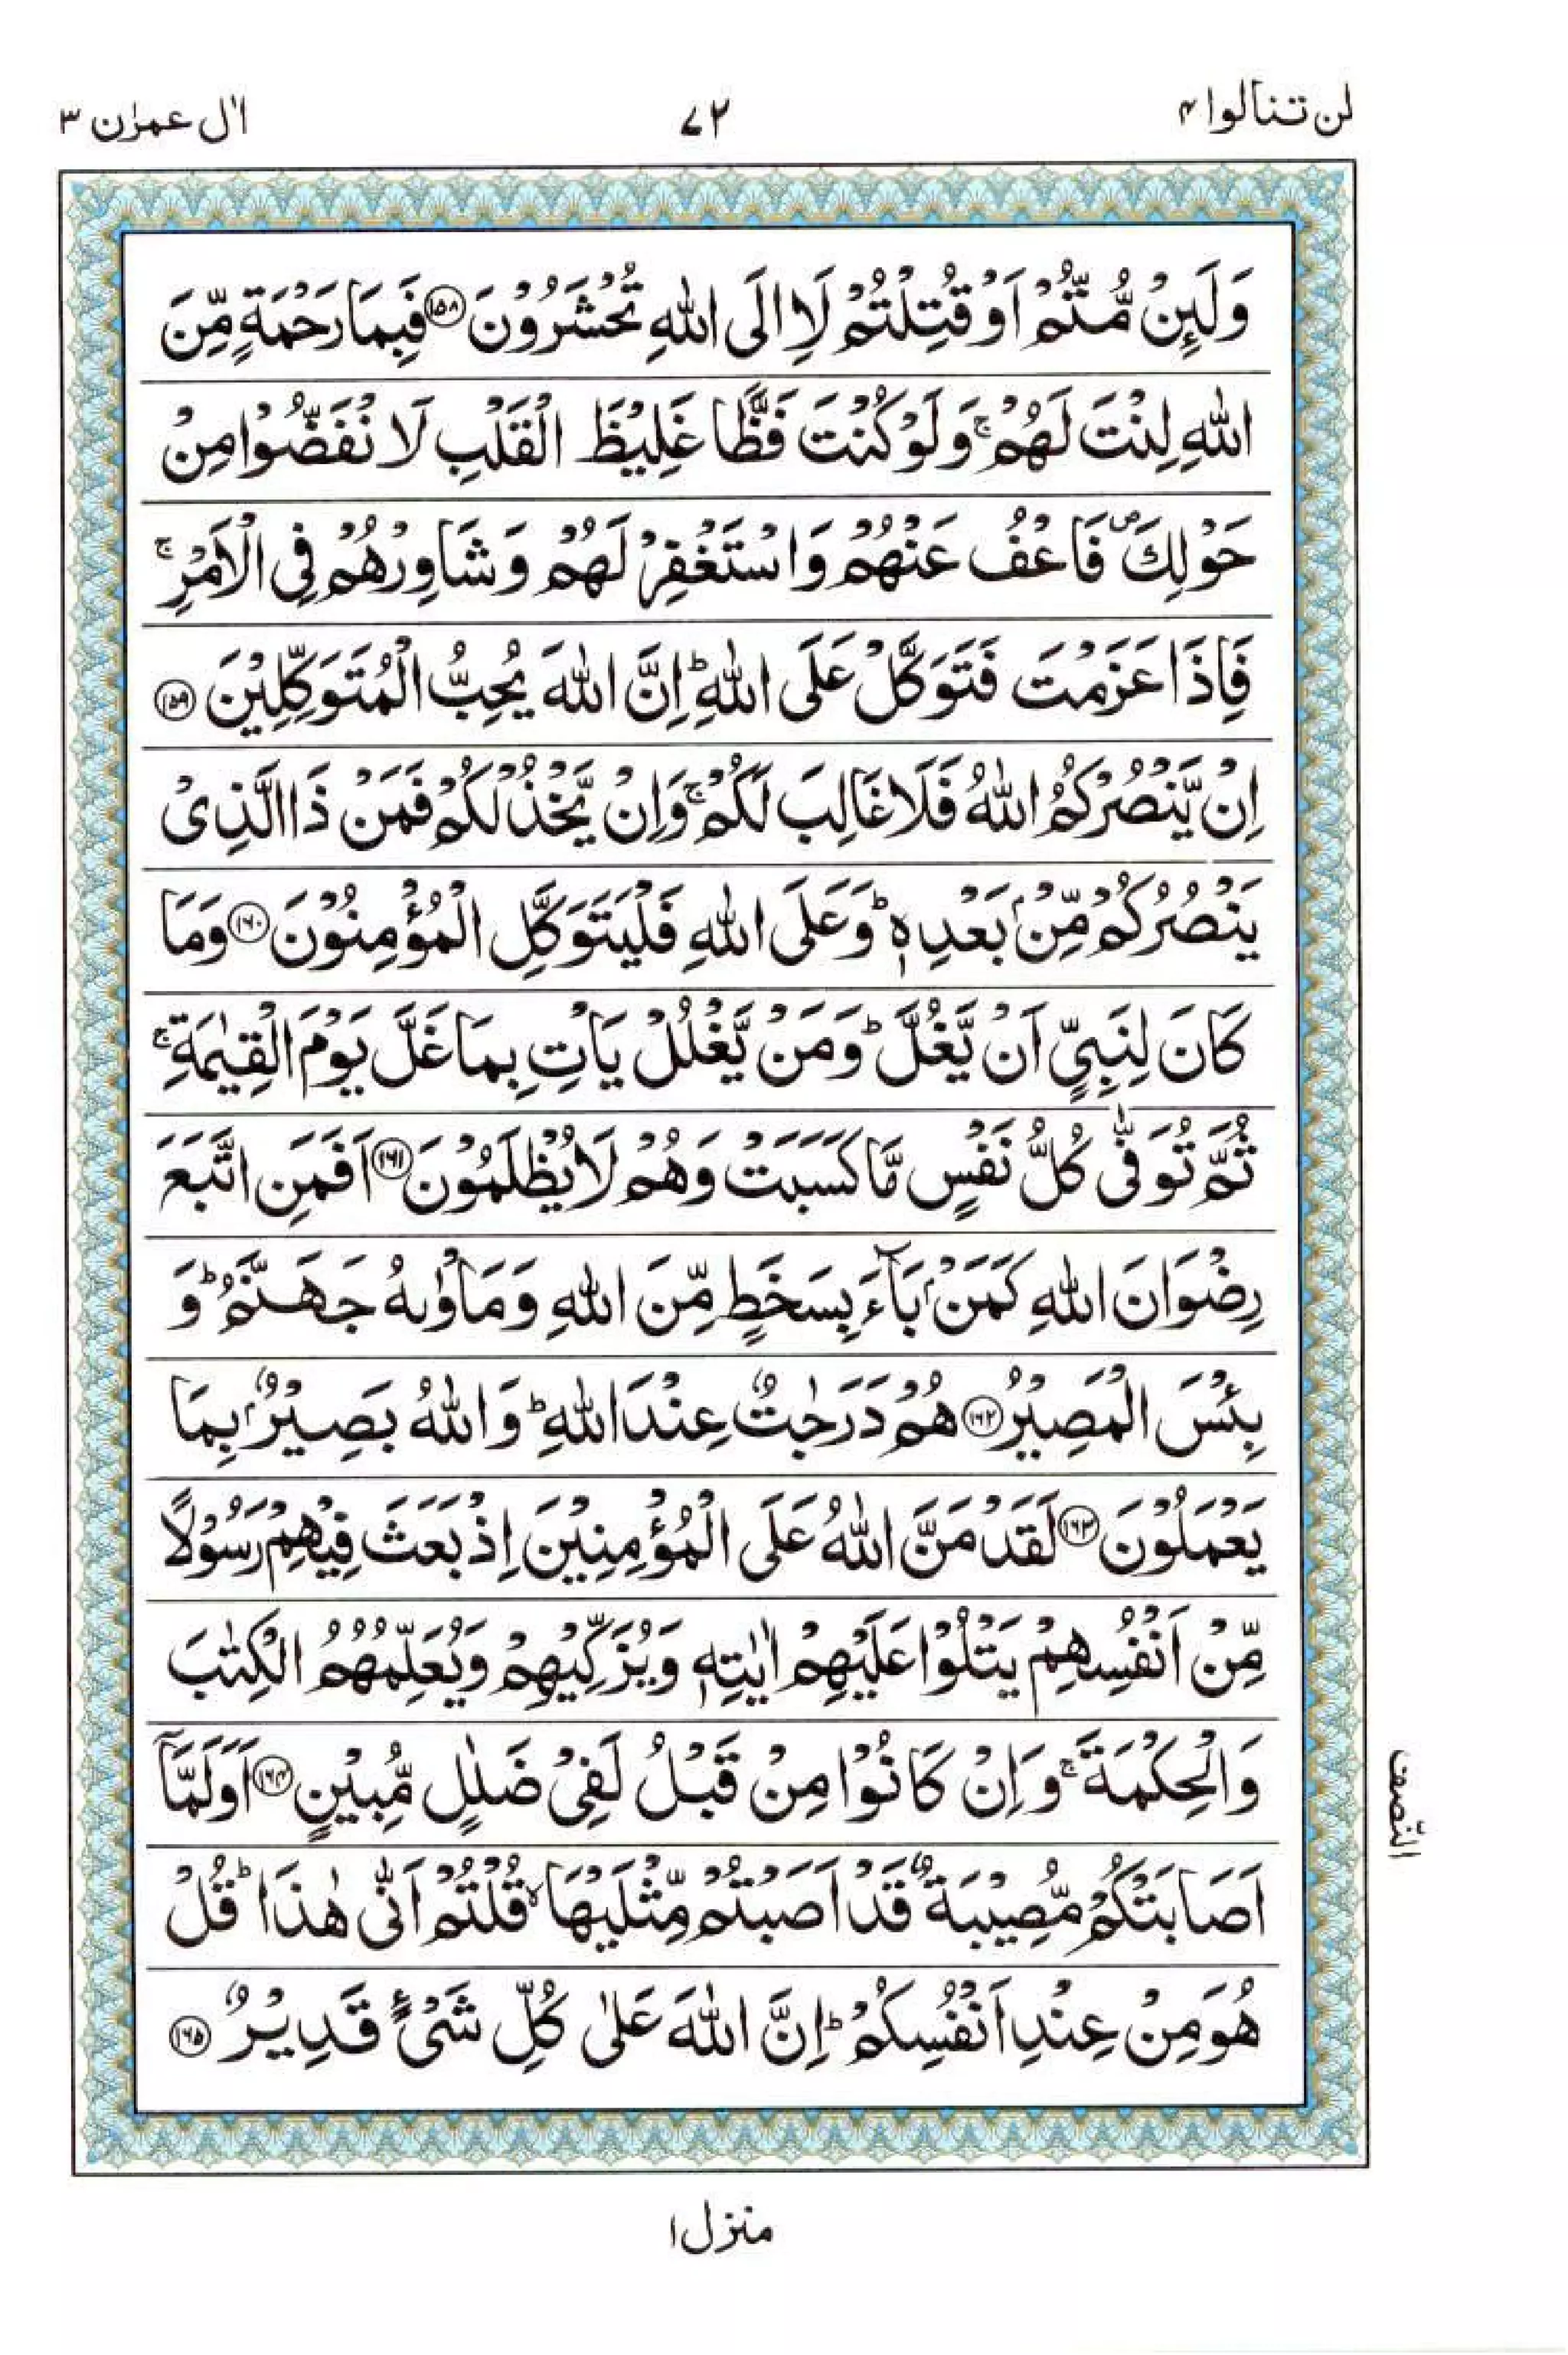 لن تنالوا ۴
۷۲
اٰل عمرٰن ۳
وَلَئِنْ مُّتُّمْ اَوْ قُتِلْتُمْ لَاِالَى اللّٰهِ تُحْشَرُوْنَ ﴿۱۵۸﴾ فَبِمَا رَحْمَةٍ مِّنَ
اللّٰهِ لِنْتَ لَهُمْ ۚ وَلَوْ كُنْتَ فَظًّا غَلِيْظَ الْقَلْبِ لَا نْفَضُّوْا مِنْ
حَوْلِكَ ۪ فَاعْفُ عَنْهُمْ وَاسْتَغْفِرْ لَهُمْ وَشَاوِرْهُمْ فِى الْاَمْرِ ۚ
فَاِذَا عَزَمْتَ فَتَوَكَّلْ عَلَى اللّٰهِ ؕ اِنَّ اللّٰهَ يُحِبُّ الْمُتَوَكِّلِيْنَ ﴿۱۵۹﴾
اِنْ يَّنْصُرْكُمُ اللّٰهُ فَلَا غَالِبَ لَكُمْ ۚ وَاِنْ يَّخْذُلْكُمْ فَمَنْ ذَا الَّذِىْ
يَنْصُرُكُمْ مِّنْۢ بَعْدِهٖ ؕ وَعَلَى اللّٰهِ فَلْيَتَوَكَّلِ الْمُؤْمِنُوْنَ ﴿۱۶۰﴾ وَمَا
كَانَ لِنَبِىٍّ اَنْ يَّغُلَّ ؕ وَمَنْ يَّغْلُلْ يَاْتِ بِمَا غَلَّ يَوْمَ الْقِيٰمَةِ ۚ
ثُمَّ تُوَفّٰى كُلُّ نَفْسٍ مَّا كَسَبَتْ وَهُمْ لَا يُظْلَمُوْنَ ﴿۱۶۱﴾ اَفَمَنِ اتَّبَعَ
رِضْوَانَ اللّٰهِ كَمَنْۢ بَآءَ بِسَخَطٍ مِّنَ اللّٰهِ وَمَاْوٰىهُ جَهَنَّمُ ؕ وَ
بِئْسَ الْمَصِيْرُ ﴿۱۶۲﴾ هُمْ دَرَجٰتٌ عِنْدَ اللّٰهِ ؕ وَاللّٰهُ بَصِيْرٌۢ بِمَا
يَعْمَلُوْنَ ﴿۱۶۳﴾ لَقَدْ مَنَّ اللّٰهُ عَلَى الْمُؤْمِنِيْنَ اِذْ بَعَثَ فِيْهِمْ رَسُوْلًا
مِّنْ اَنْفُسِهِمْ يَتْلُوْا عَلَيْهِمْ اٰيٰتِهٖ وَيُزَكِّيْهِمْ وَيُعَلِّمُهُمُ الْكِتٰبَ
وَالْحِكْمَةَ ۚ وَاِنْ كَانُوْا مِنْ قَبْلُ لَفِىْ ضَلٰلٍ مُّبِيْنٍ ﴿۱۶۴﴾ اَوَلَمَّاۤ
النّصف
اَصَابَتْكُمْ مُّصِيْبَةٌ قَدْ اَصَبْتُمْ مِّثْلَيْهَا ۙ قُلْتُمْ اَنّٰى هٰذَا ؕ قُلْ
هُوَ مِنْ عِنْدِ اَنْفُسِكُمْ ؕ اِنَّ اللّٰهَ عَلٰى كُلِّ شَىْءٍ قَدِيْرٌ ﴿۱۶۵﴾
منزل ۱